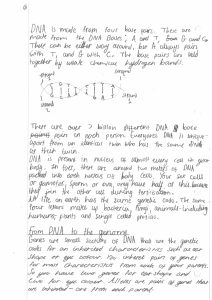 DNA is made from four base pairs. These are
made from the DNA Bases; A and T, and G and C.
There can be either way around, but A always pairs
with T, and G with C. The base pairs are held
together by weak chemical hydrogen bonds.
There are over 3 billion different DNA base
pairs in each person. Everyones DNA is unique
apart from an identical twin who has the same DNA
as their twin.
DNA is present in nucleus of almost every cell in your
body. In fact, there are around two metres of DNA
packed into each nucleus of body cell. Your sex cells
or gametes, sperm or ova, only have half of this because
that join the other cell during fertilisation.
All life on earth has the same genetic code. The same
four letters make up bacteria, fungi, animals including
humans, plants and single celled
From DNA to the genome
Genes are small sections of DNA that are the genetic
code for an inherited characteristics such as ear
shape or eye colour. You inherit pairs of genes
for most characteristics from each of your parents.
So you have two genes for ear shape and
two for eye colour. Alleles are pairs of genes that
are inherited - one from each parent